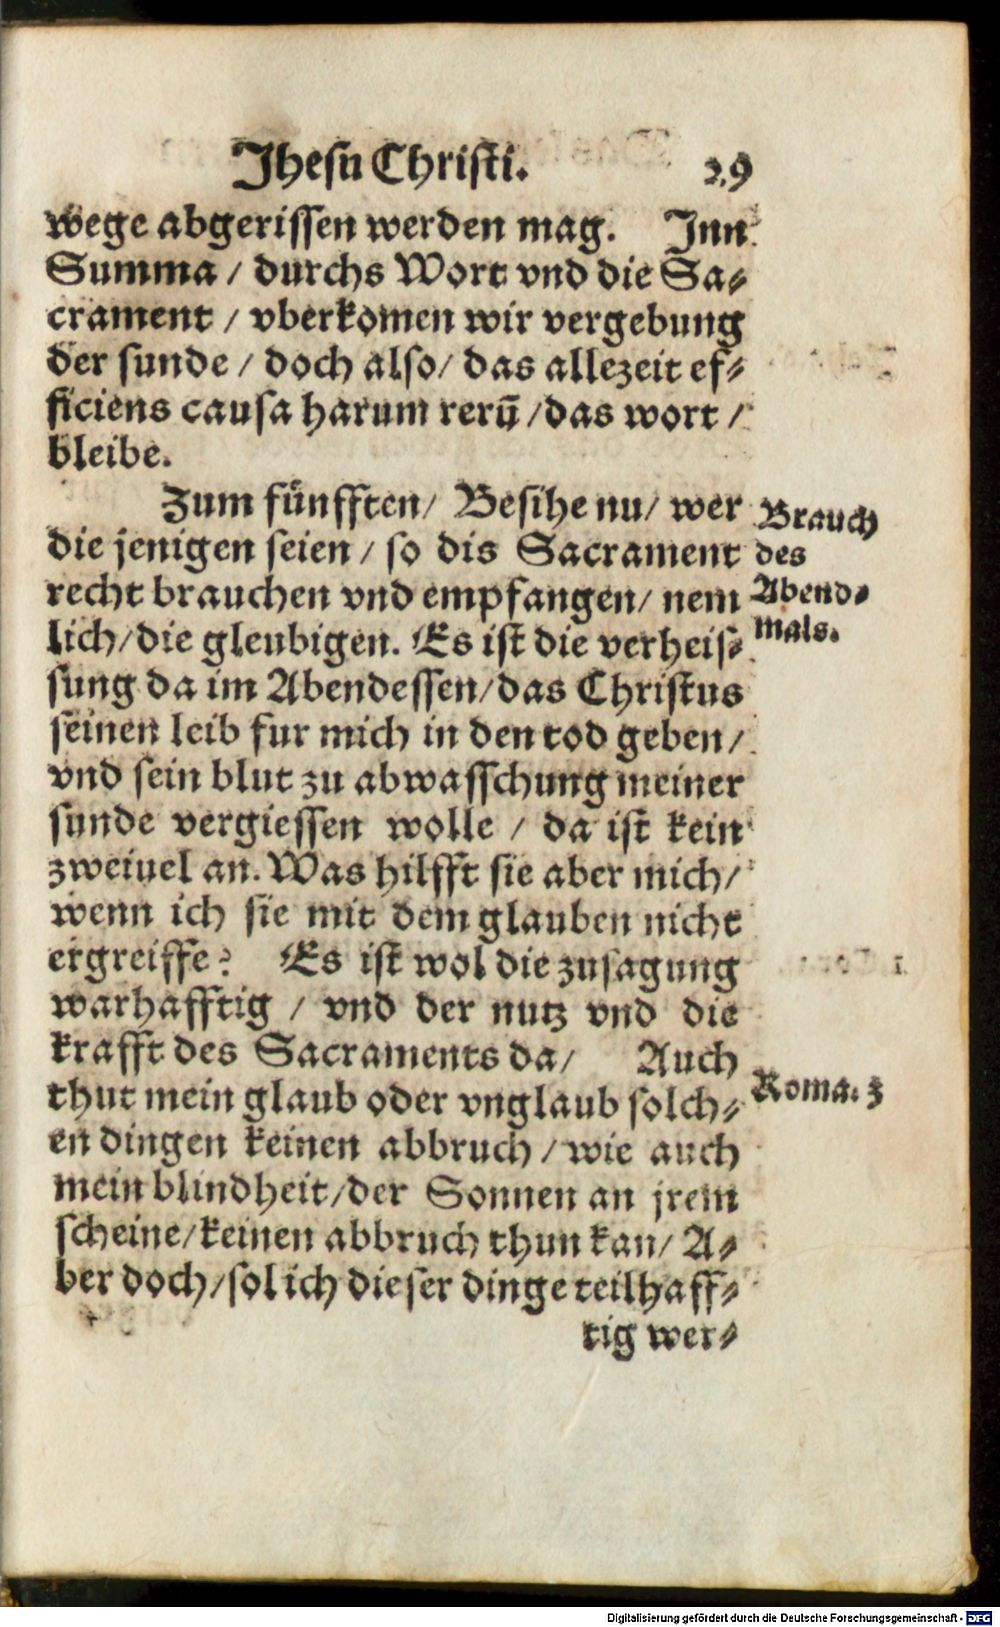 Jhesu Christi. 29
wege abgerissen werden mag. Inn
Summa / durchs Wort vnd die Sa⸗
crament / vberkomen wir vergebung
der sunde / doch also / das allezeit ef⸗
ficiens causa harum rerū / das wort /
bleibe.
Zum fünfften / Besihe nu / wer
die jenigen seien / so dis Sacrament
recht brauchen vnd empfangen / nem
lich / die gleubigen. Es ist die verheis⸗
sung da im Abendessen / das Christus
seinen leib fur mich in den tod geben /
vnd sein blut zu abwasschung meiner
sunde vergiessen wolle / da ist kein
zweiuel an. Was hilfft sie aber mich /
wenn ich sie mit dem glauben nicht
ergreiffe? Es ist wol die zusagung
warhafftig / vnd der nutz vnd die
krafft des Sacraments da / Auch
thut mein glaub oder vnglaub solch⸗
en dingen keinen abbruch / wie auch
mein blindheit / der Sonnen an jrem
scheine / keinen abbruch thun kan / A⸗
ber doch / sol ich dieser dinge teilhaff⸗
tig wer⸗
Brauch
des
Abend⸗
mals.
Roma. 3
Digitalisierung gefördert durch die Deutsche Forschungsgemeinschaft - DFG